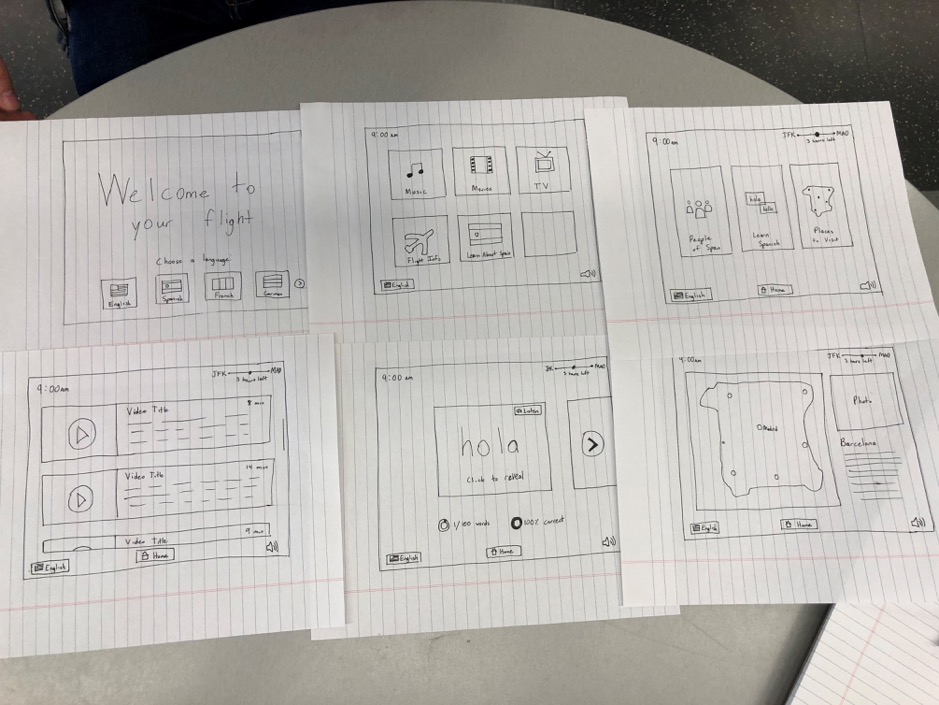 Welcome to
your flight
Choose a language
English
Spanish
French
German
9:00am
Music
Movies
TV
Flight Info
Learn About Spain
English
9:00am
JFK
MAD
3 hours left
People
of Spain
hola
hello
Learn
Spanish
Places
to Visit
English
Home
9:00am
JFK
MAD
3 hours left
Video Title
8 min
Video Title
14 min
Video Title
9 min
English
Home
9:00am
JFK
MAD
3 hours left
Listen
hola
Click to reveal
1/100 words
100% correct
English
Home
9:00am
JFK
MAD
3 hours left
Madrid
Photo
Barcelona
English
Home